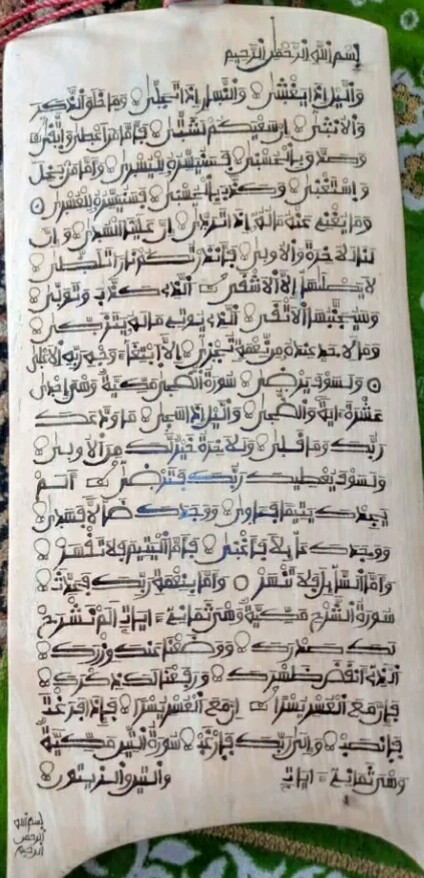 بسم الله الرحمن الرحيم
واليل إذا يغشى والنهار إذا تجلى وما خلق الذكر
والانثى إن سعيكم لشتى فأما من أعطى واتقى
وصدق بالحسنى فسنيسره لليسرى وأما من بخل
واستغنى وكذب بالحسنى فسنيسره للعسرى
وما يغنى عنه ماله إذا تردى إن علينا للهدى وإن
لنا للاخرة والاولى فأنذرتكم نارا تلظى
لا يصلها إلا الاشقى الذى كذب وتولى
وسيجنبها الاتقى الذى يوتى ماله يتزكى
وما لاحد عنده من نعمة تجزى إلا ابتغاء وجه ربه الاعلى
ولسوف يرضى سورة الضحى مكية وهى إحدى
عشرة ءاية والضحى واليل إذا سجى ما ودعك
ربك وما قلى وللاخرة خير لك من الاولى
ولسوف يعطيك ربك فترضى ألم
يجدك يتيما فاوى ووجدك ضالا فهدى
ووجدك عائلا فأغنى فأما اليتيم فلا تقهر
وأما السائل فلا تنهر وأما بنعمة ربك فحدث
سورة الشرح مكية وهى ثمانية ءايات ألم نشرح
لك صدرك ووضعنا عنك وزرك
الذى أنقض ظهرك ورفعنا لك ذكرك
فإن مع العسر يسرا إن مع العسر يسرا فإذا فرغت
فانصب وإلى ربك فارغب سورة التين مكية
وهى ثمانية ءايات والتين والزيتون
بسم الله
الرحمن
الرحيم